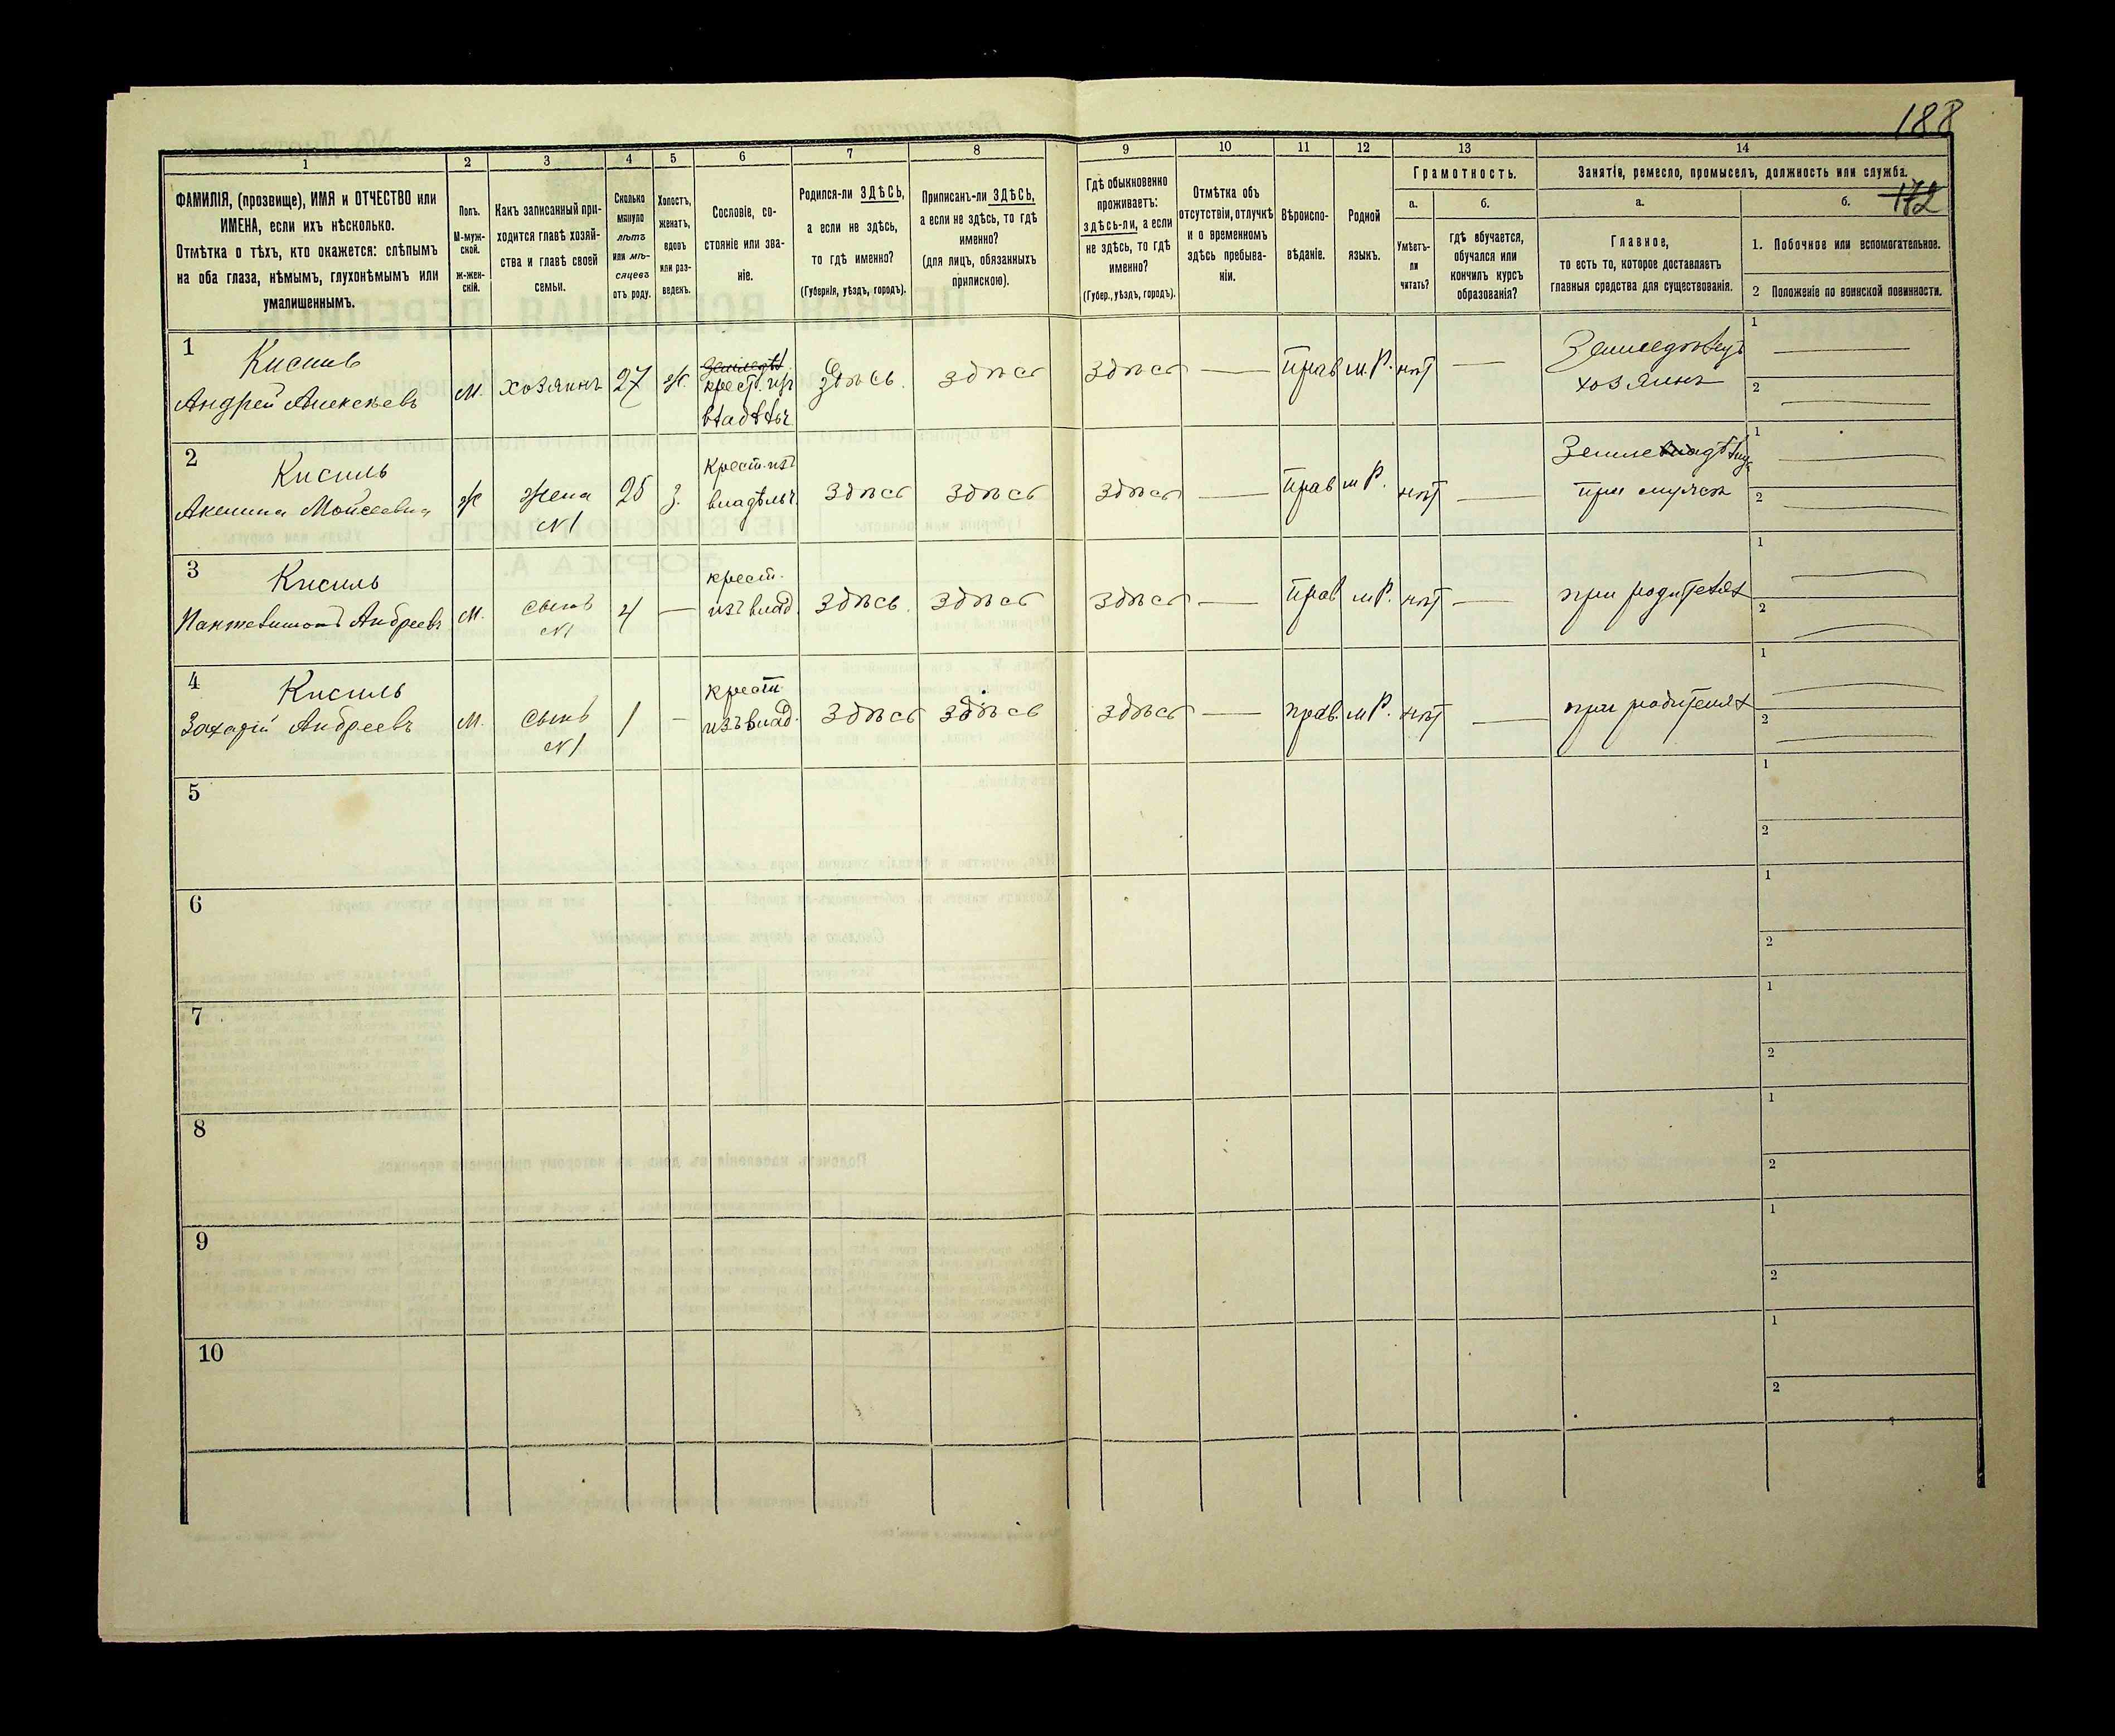 188
1
2
3
4
5
6
7
8
9
10
11
12
13
14
ФАМИЛІЯ, (прозвище), ИМЯ и ОТЧЕСТВО или
ИМЕНА, если ихъ нѣсколько.
Отмѣтка о тѣхъ, кто окажется: слѣпымъ
на оба глаза, нѣмымъ, глухонѣмымъ или
умалишеннымъ.
Полъ.
М-муж-
ской.
Ж-жен-
скій.
Какъ записанный при-
ходится главѣ хозяй-
ства и главѣ своей
семьи.
Сколько
минуло
лѣтъ
или мѣ-
сяцевъ
отъ роду.
Холостъ,
женатъ,
вдовъ
или раз-
веденъ.
Сословіе, со-
стояніе или зва-
ніе.
Родился-ли ЗДѢСЬ,
а если не здѣсь,
то гдѣ именно?
(Губернія, уѣздъ, городъ).
Приписанъ-ли ЗДѢСЬ,
а если не здѣсь, то гдѣ
именно?
(для лицъ, обязанныхъ
припискою).
Гдѣ обыкновенно
проживаетъ:
здѣсь-ли, а если
не здѣсь, то гдѣ
именно?
(Губер., уѣздъ, городъ).
Отмѣтка объ
отсутствіи, отлучкѣ
и о временномъ
здѣсь пребыва-
ніи.
Вѣроиспо-
вѣданіе.
Родной
языкъ.
Грамотность.
а.
Умѣетъ-
ли
читать?
б.
гдѣ обучается,
обучался или
кончилъ курсъ
образованія?
Занятіе, ремесло, промыселъ, должность или служба.
а.
Главное,
то есть то, которое доставляетъ
главныя средства для существованія.
б. 172
1. Побочное или вспомогательное.
2 Положеніе по воинской повинности.
1 Кисиль
Андрей Алексѣевъ М. хозяинъ 27 ж. крест. изъ владѣльч. здѣсь. здѣсь здѣсь — прав м.Р. нѣт — Земледѣлецъ хозяинъ 1 2
2 Кисиль
Акилина Мойсеевна ж жена №1 25 з. крест. изъ владѣльч. здѣсь здѣсь здѣсь — прав м Р. нѣт — при мужѣ 1 2
3 Кисиль
Пантелимонъ Андреевъ М. сынъ №1 4 — крест. изъ влад. здѣсь. здѣсь здѣсь — прав м Р. нѣт — при родителях 1 2
4 Кисиль
Захарій Андреевъ М. сынъ №1 1 — крест. изъ влад. здѣсь здѣсь здѣсь — прав. м Р. нѣт — при родителях 1 2
5 1 2
6 1 2
7 1 2
8 1 2
9 1 2
10 1 2